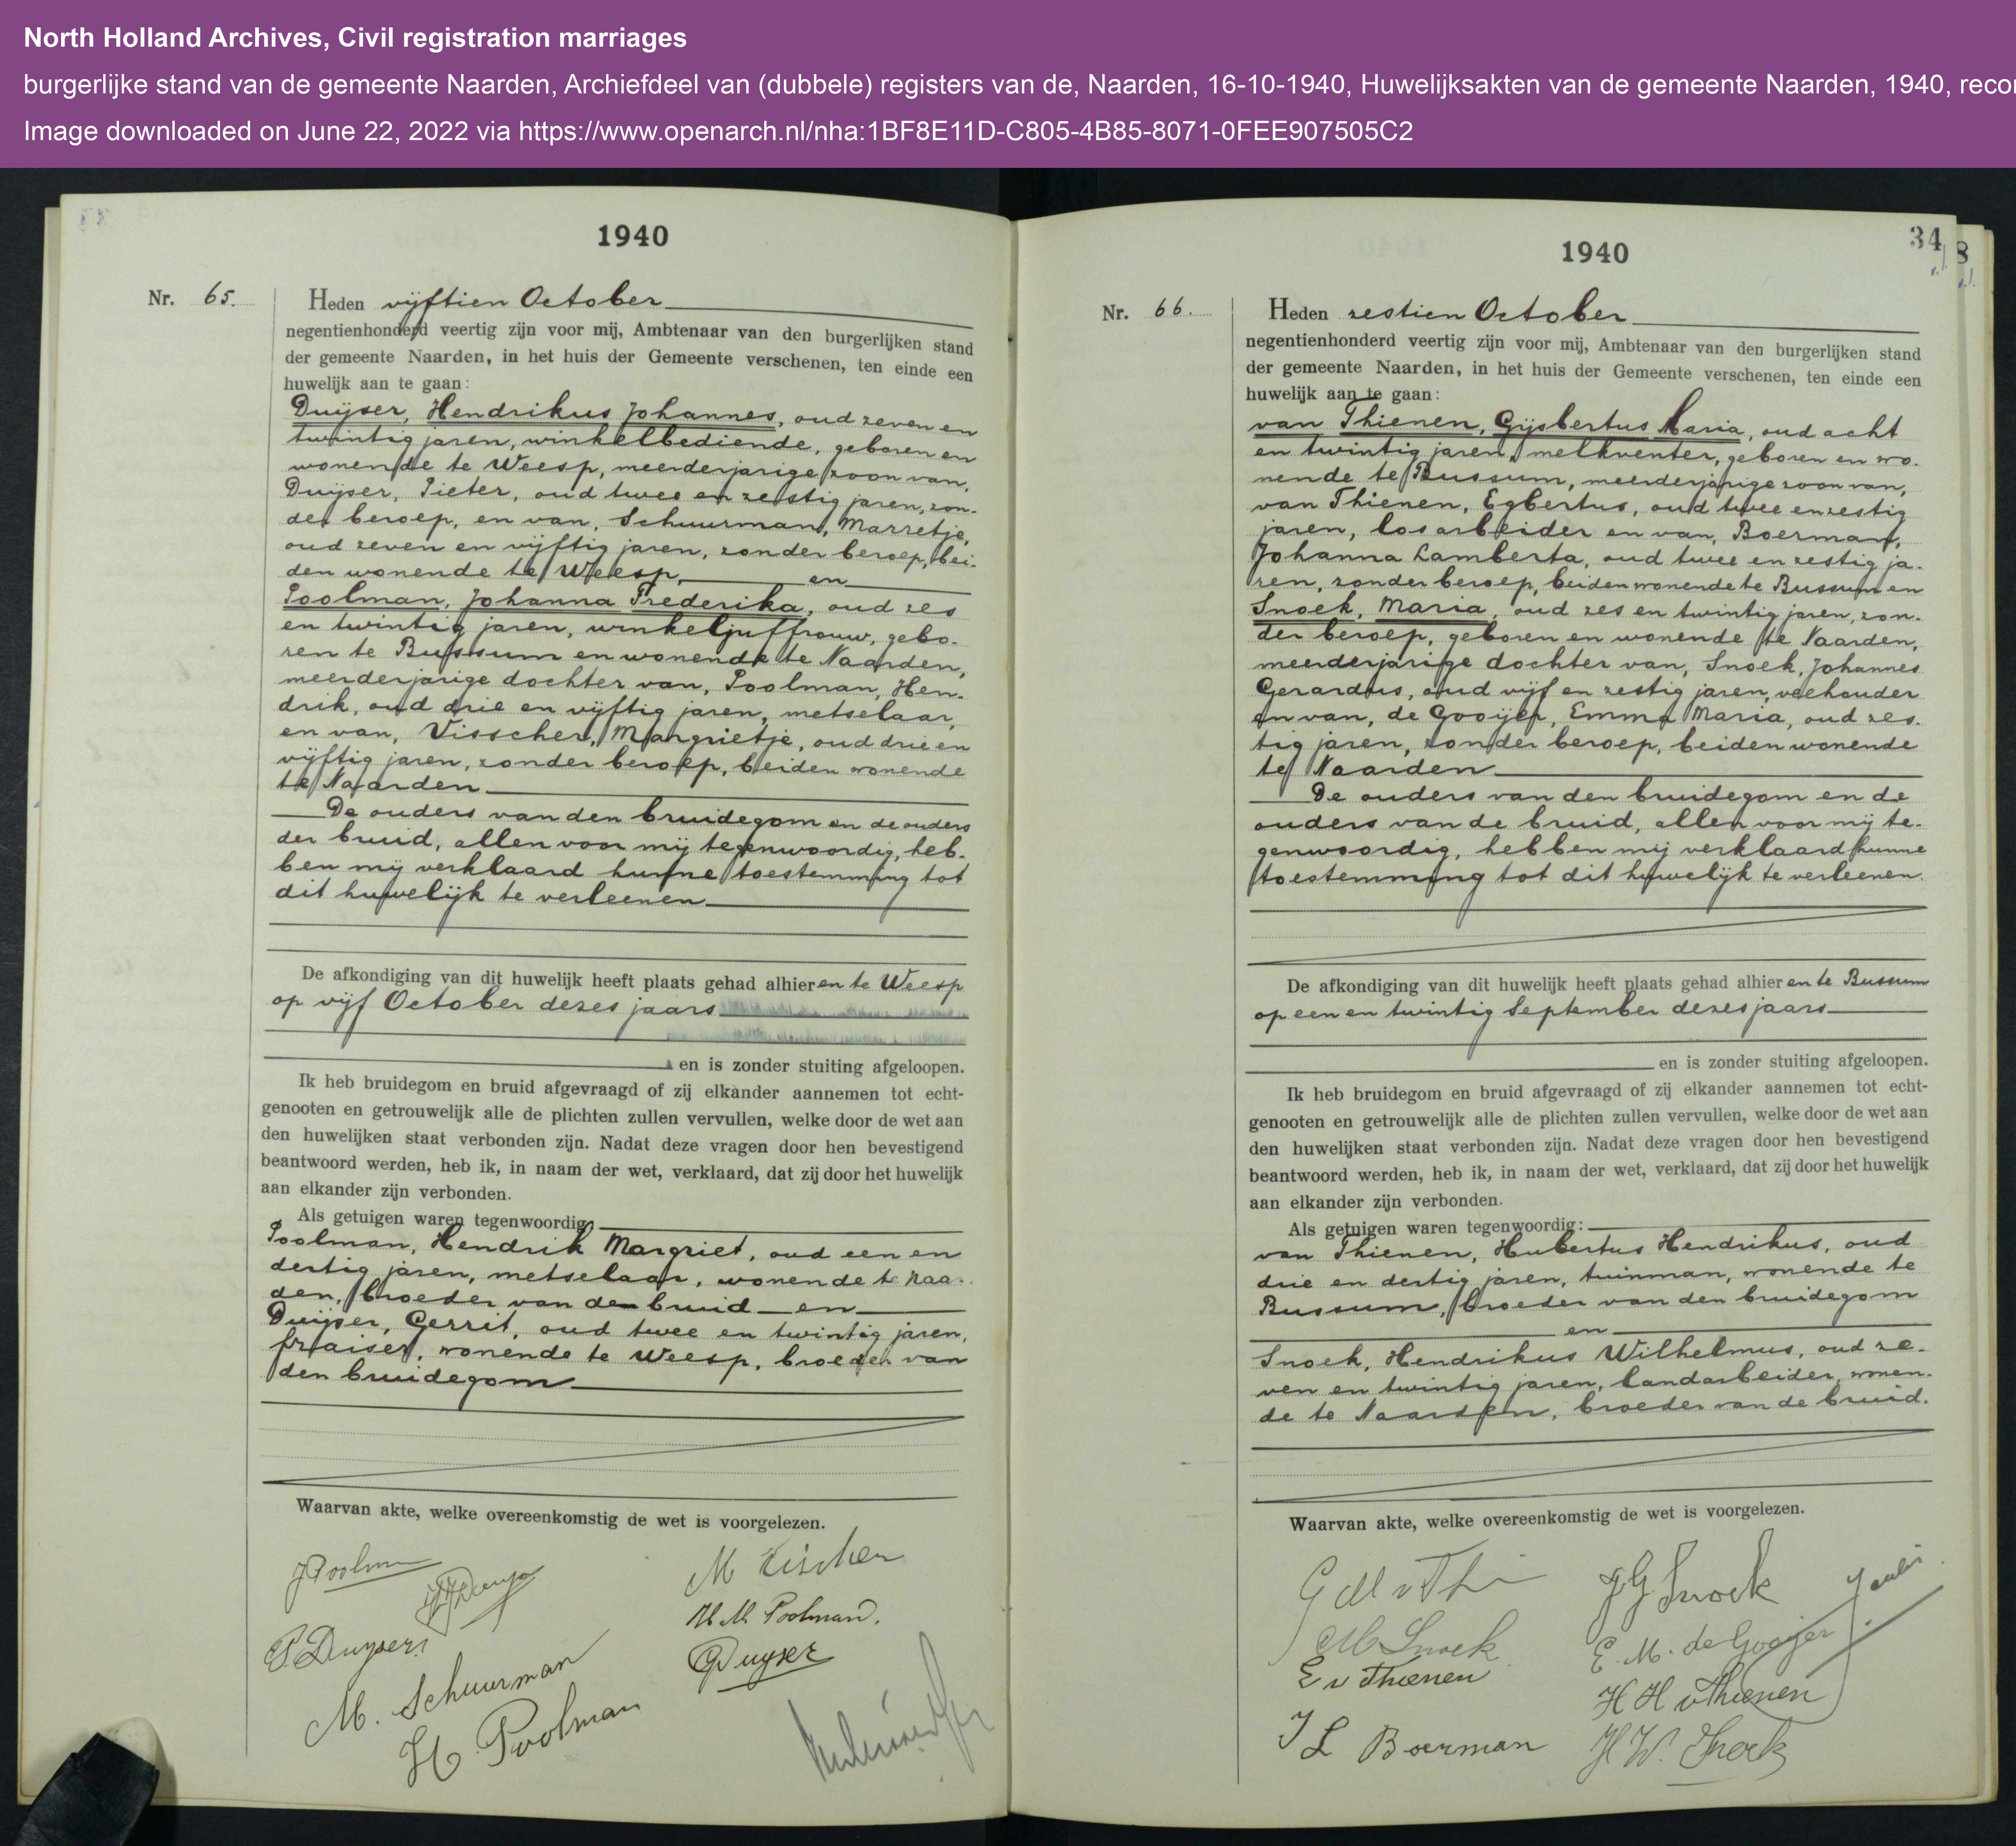 North Holland Archives, Civil registration marriages
burgerlijke stand van de gemeente Naarden, Archiefdeel van (dubbele) registers van de, Naarden, 16-10-1940, Huwelijksakten van de gemeente Naarden, 1940, recor
Image downloaded on June 22, 2022 via https://www.openarch.nl/nha:1BF8E11D-C805-4B85-8071-0FEE907505C2
1940
Nr. 65.
Heden vijftien October
negentienhonderd veertig zijn voor mij, Ambtenaar van den burgerlijken stand
der gemeente Naarden, in het huis der Gemeente verschenen, ten einde een
huwelijk aan te gaan:
Duijser, Hendrikus Johannes, oud zeven en
twintig jaren, winkelbediende, geboren en
wonende te Weesp, meerderjarige zoon van,
Duijser, Pieter, oud twee en zestig jaren, zon-
der beroep, en van, Schuurman, Marretje,
oud zeven en vijftig jaren, zonder beroep, bei-
den wonende te Weesp, en
Poolman, Johanna Frederika, oud zes
en twintig jaren, winkeljuffrouw, gebo-
ren te Bussum en wonende te Naarden,
meerderjarige dochter van, Poolman, Hen-
drik, oud drie en vijftig jaren, metselaar,
en van, Visscher, Margrietje, oud drie en
vijftig jaren, zonder beroep, beiden wonende
te Naarden
De ouders van den bruidegom en de ouders
der bruid, allen voor mij tegenwoordig, heb-
ben mij verklaard hunne toestemming tot
dit huwelijk te verleenen
De afkondiging van dit huwelijk heeft plaats gehad alhier en te Weesp
op vijf October dezes jaars
en is zonder stuiting afgeloopen.
Ik heb bruidegom en bruid afgevraagd of zij elkander aannemen tot echt-
genooten en getrouwelijk alle de plichten zullen vervullen, welke door de wet aan
den huwelijken staat verbonden zijn. Nadat deze vragen door hen bevestigend
beantwoord werden, heb ik, in naam der wet, verklaard, dat zij door het huwelijk
aan elkander zijn verbonden.
Als getuigen waren tegenwoordig:
Poolman, Hendrik Margriet, oud een en
dertig jaren, metselaar, wonende te Naa-
den, broeder van den bruid en
Duijser, Gerrit, oud twee en twintig jaren,
fraiser, wonende te Weesp, broeder van
den bruidegom
Waarvan akte, welke overeenkomstig de wet is voorgelezen.
J Poolman
HJ Duyser
P. Duyser.
M. Schuurman
H. Poolman
M Visscher
H M Poolman.
G Duyser
34
8
1940
Nr. 66.
Heden zestien October
negentienhonderd veertig zijn voor mij, Ambtenaar van den burgerlijken stand
der gemeente Naarden, in het huis der Gemeente verschenen, ten einde een
huwelijk aan te gaan:
van Thienen, Gijsbertus Maria, oud acht
en twintig jaren, melkventer, geboren en wo-
nende te Bussum, meerderjarige zoon van,
van Thienen, Egbertus, oud twee en zestig
jaren, los arbeider en van, Boerman,
Johanna Lamberta, oud twee en zestig ja-
ren, zonder beroep, beiden wonende te Bussum en
Snoek, Maria, oud zes en twintig jaren, zon-
der beroep, geboren en wonende te Naarden,
meerderjarige dochter van, Snoek, Johannes
Gerardus, oud vijf en zestig jaren, veehouder
en van, de Gooijer, Emma Maria, oud zes-
tig jaren, zonder beroep, beiden wonende
te Naarden
De ouders van den bruidegom en de
ouders van de bruid, allen voor mij te-
genwoordig, hebben mij verklaard hunne
toestemming tot dit huwelijk te verleenen.
De afkondiging van dit huwelijk heeft plaats gehad alhier en te Bussum
op een en twintig September dezes jaars
en is zonder stuiting afgeloopen.
Ik heb bruidegom en bruid afgevraagd of zij elkander aannemen tot echt-
genooten en getrouwelijk alle de plichten zullen vervullen, welke door de wet aan
den huwelijken staat verbonden zijn. Nadat deze vragen door hen bevestigend
beantwoord werden, heb ik, in naam der wet, verklaard, dat zij door het huwelijk
aan elkander zijn verbonden.
Als getuigen waren tegenwoordig:
van Thienen, Hubertus Hendrikus, oud
drie en dertig jaren, tuinman, wonende te
Bussum, broeder van den bruidegom
en
Snoek, Hendrikus Wilhelmus, oud ze-
ven en twintig jaren, landarbeider, wonen-
de te Naarden, broeder van de bruid.
Waarvan akte, welke overeenkomstig de wet is voorgelezen.
G M v Thi
M Snoek
E v Thienen
J L Boerman
J G Snoek
E. M. de Gooijer
H H v Thienen
H W. Snoek